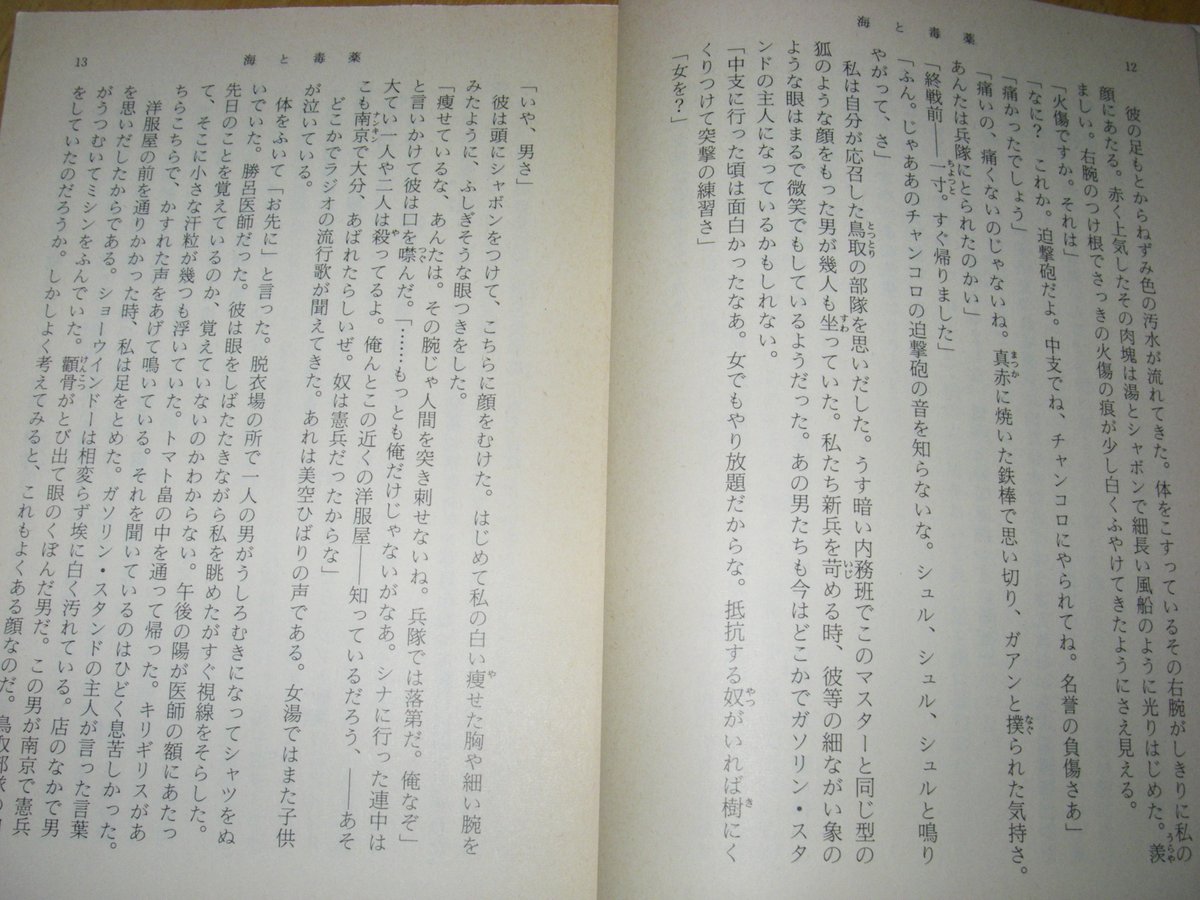 海と毒薬
12
彼の足もとからねずみ色の汚水が流れてきた。体をこすっているその右腕がしきりに私の
顔にあたる。赤く上気したその肉塊は湯とシャボンで細長い風船のように光りはじめた。羨うらや
ましい。右腕のつけ根でさっきの火傷の痕が少し白くふやけてきたようにさえ見える。
「火傷ですか。それは」
「なに？　これか。迫撃砲だよ。中支でね、チャンコロにやられてね。名誉の負傷さあ」
「痛かったでしょう」
「痛いの、痛くないのじゃないね。真赤まつかに焼いた鉄棒で思い切り、ガアンと撲なぐられた気持さ。
あんたは兵隊にとられたのかい」
「終戦前――一寸ちよつと。すぐ帰りました」
「ふん。じゃああのチャンコロの迫撃砲の音を知らないな。シュル、シュル、シュルと鳴り
やがって、さ」
私は自分が応召した鳥取とつとりの部隊を思いだした。うす暗い内務班でこのマスターと同じ型の
狐のような顔をもった男が幾人も坐すわっていた。私たち新兵を苛いじめる時、彼等の細ながい象の
ような眼はまるで微笑でもしているようだった。あの男たちも今はどこかでガソリン・スタ
ンドの主人になっているかもしれない。
「中支に行った頃は面白かったなあ。女でもやり放題だからな。抵抗する奴やつがいれば樹きにく
くりつけて突撃の練習さ」
「女を？」
海と毒薬
13
「いや、男さ」
彼は頭にシャボンをつけて、こちらに顔をむけた。はじめて私の白い痩やせた胸や細い腕を
みたように、ふしぎそうな眼つきをした。
「痩せているな、あんたは。その腕じゃ人間を突き刺せないね。兵隊では落第だ。俺なぞ」
と言いかけて彼は口を噤つぐんだ。「……もっとも俺だけじゃないがなあ。シナに行った連中は
大てい一人や二人は殺やってるよ。俺んとこの近くの洋服屋――知っているだろう、――あそ
こも南京ナンキンで大分、あばれたらしいぜ。奴は憲兵だったからな」
どこかでラジオの流行歌が聞えてきた。あれは美空ひばりの声である。女湯ではまた子供
が泣いている。
体をふいて「お先に」と言った。脱衣場の所で一人の男がうしろむきになってシャツをぬ
いでいた。勝呂医師だった。彼は眼をしばたたきながら私を眺めたがすぐ視線をそらした。
先日のことを覚えているのか、覚えていないのかわからない。午後の陽が医師の額にあたっ
て、そこに小さな汗粒が幾つも浮いていた。トマト畠の中を通って帰った。キリギリスがあ
ちらこちらで、かすれた声をあげて鳴いている。それを聞いているのはひどく息苦しかった。
洋服屋の前を通りかかった時、私は足をとめた。ガソリン・スタンドの主人が言った言葉
を思いだしたからである。ショーウインドーは相変らず埃に白く汚れている。店のなかで男
がうつむいてミシンをふんでいた。顴骨けんこつがとび出て眼のくぼんだ男だ。この男が南京で憲兵
をしていたのだろうか。しかしよく考えてみると、これもよくある顔なのだ。鳥取部隊の